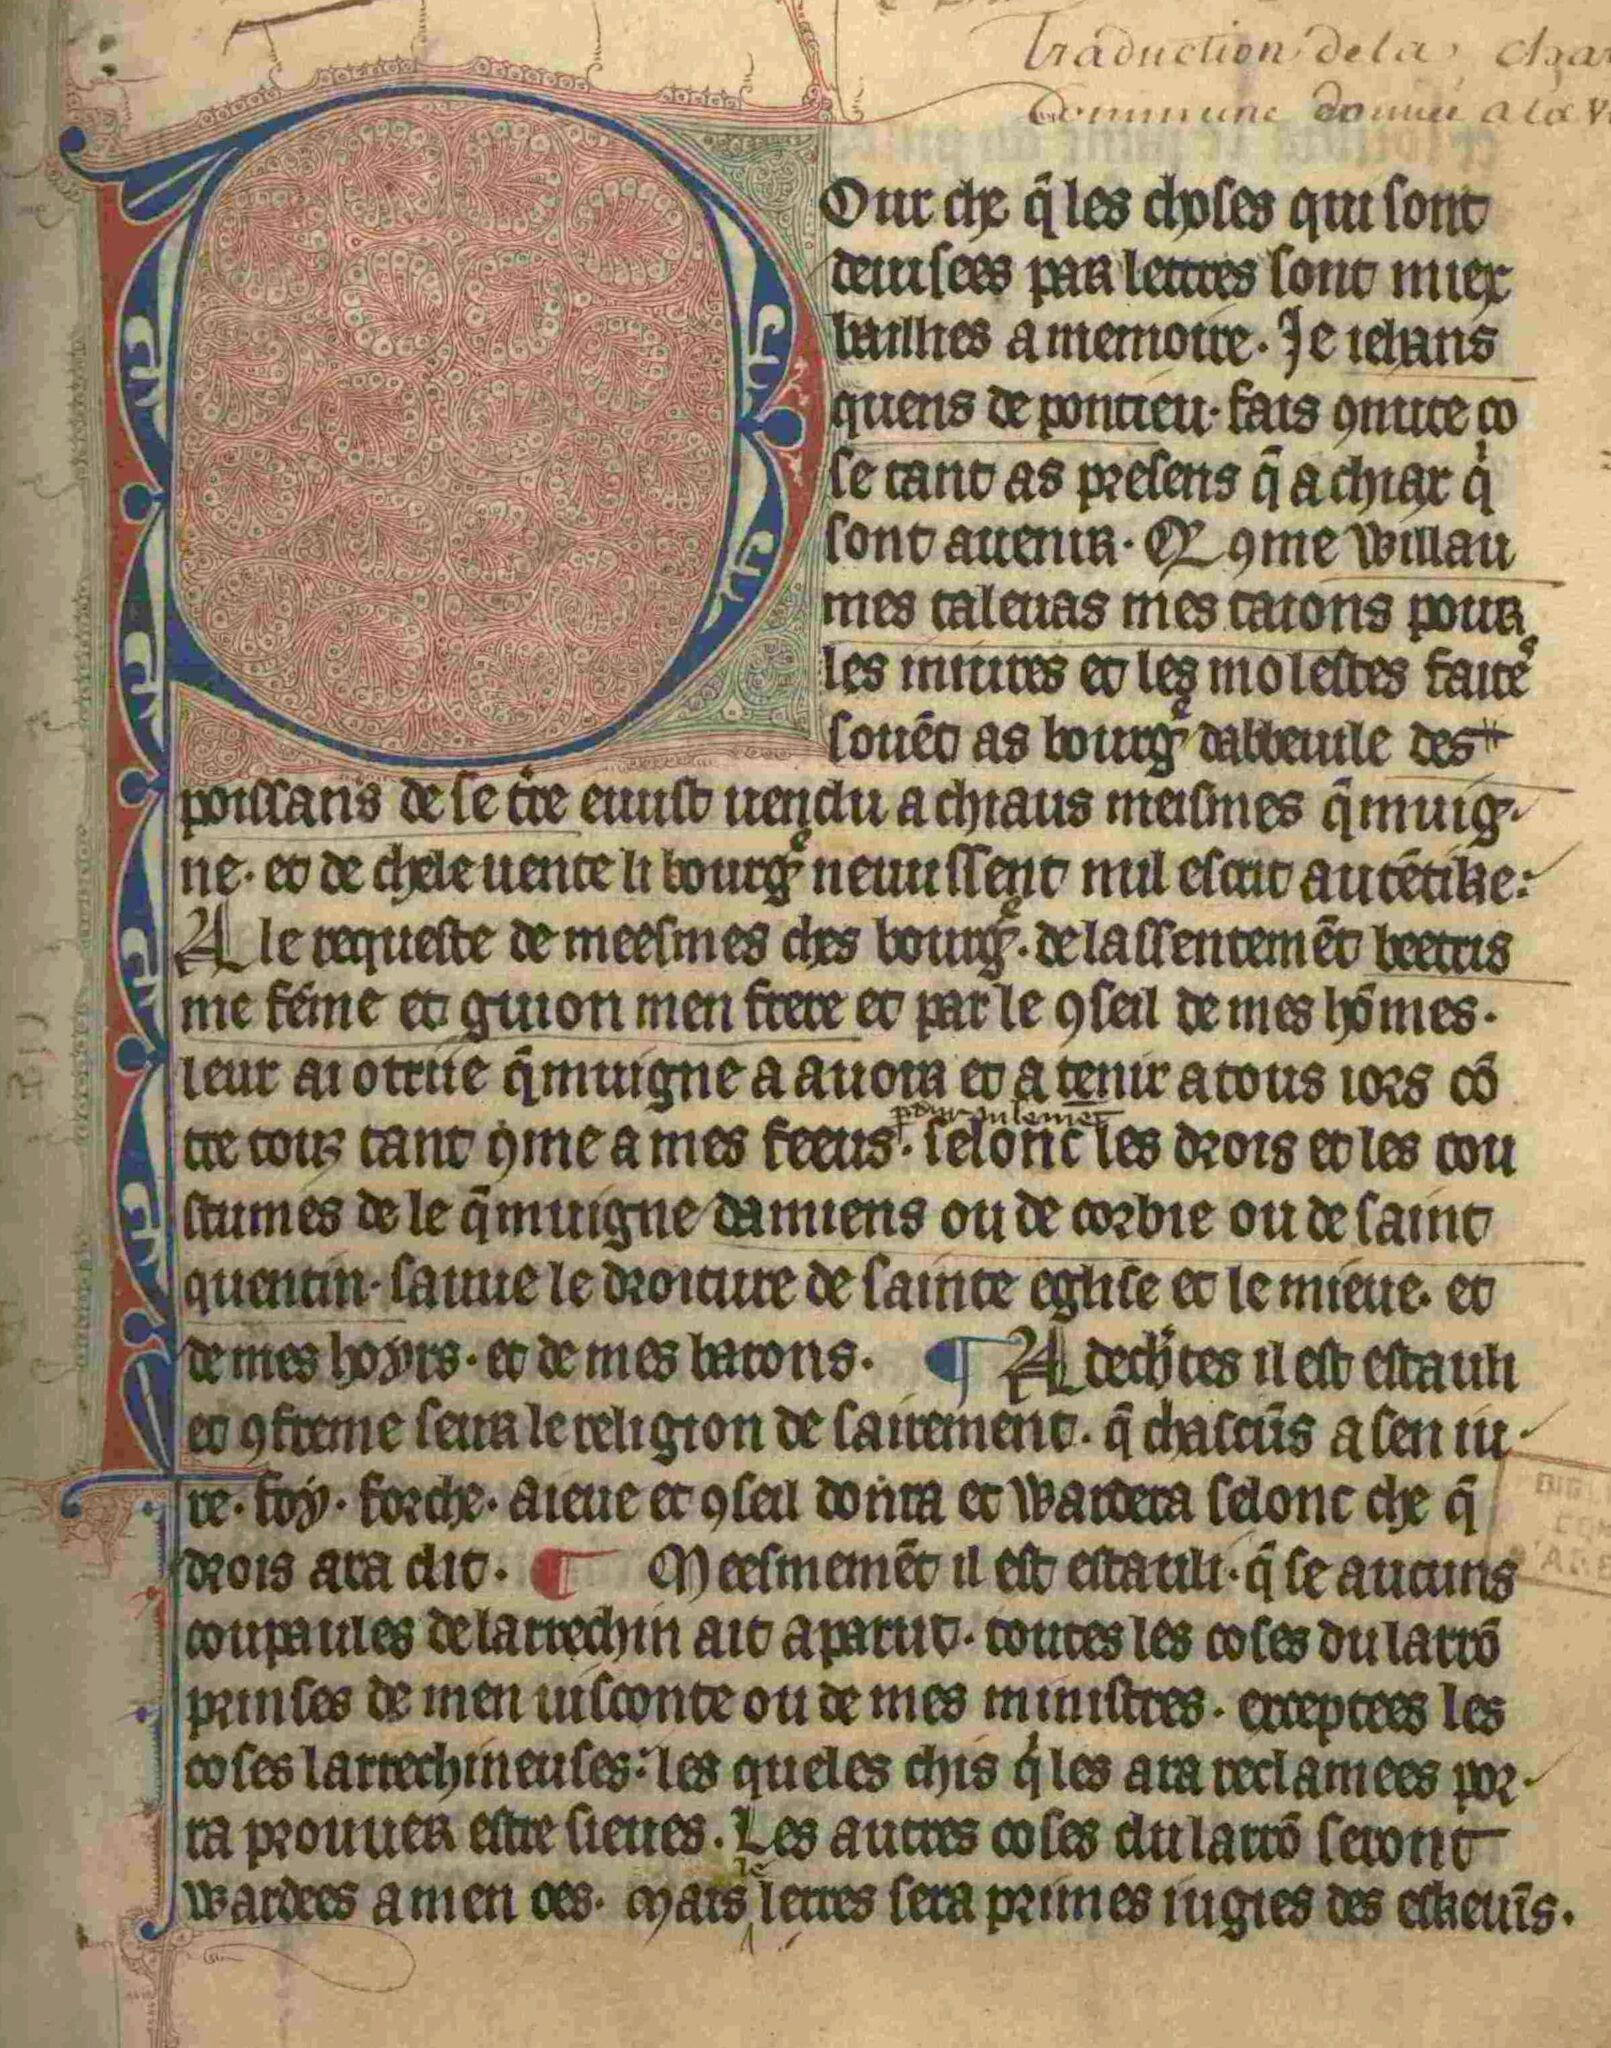 Traduction de la char
Commune donnee a la v
Pour che q̄ les choses qui sont
deuisees par lettres sont miex
baillies a memoire. Je iehans
quens de pontieu. fais ꝯnute co
se tant as presens q̄ a chiax qͥ
sont auenir. Q ꝯme Willau
mes taleuas mes taions pour
les iniures et les molestes faites
souēt as bourgͤ dabbeuile des
poissans de se tͤre euust uendu a chiaus meismes q̄muig
ne. et de chele uente li bourgͤ neuussent nul escrit autētike:
A le requeste de meesmes ches bourgͤ. de lassentemēt beetris
me fēme et guion men frere et par le ꝯseil de mes hōmes.
leur ai otriie q̄muigne a auoir et a tenir a tous iors cō
tre tous tant ꝯme a mes feeus. selonc les drois et les cou
stumes de le q̄muigne damiens ou de corbie ou de saint
quentin. sauue le droiture de sainte eglise et le mieue. et
de mes hoyrs. et de mes barons. ¶ A dechͤtes il est estauli
et ꝯfreme seur le religion de sairement. q̄ chascūs a sen iu
re. foy. forche. aieue et ꝯseil donra et Wardera selonc che q̄
drois ara dit. ¶ Meesmemēt il est estauli. q̄ se aucuns
coupaules de larrechin ait aparut. toutes les coses du larrō
prinses de men uisconte ou de mes ministres. exceptees les
coses larrechineuses: les queles chis qͥ les ara reclamees por
ra prouuer estre sieues. Les autres coses du larrō seront
Wardees a men oes. Mais le lerres sera primes iugies des eskeuīs.